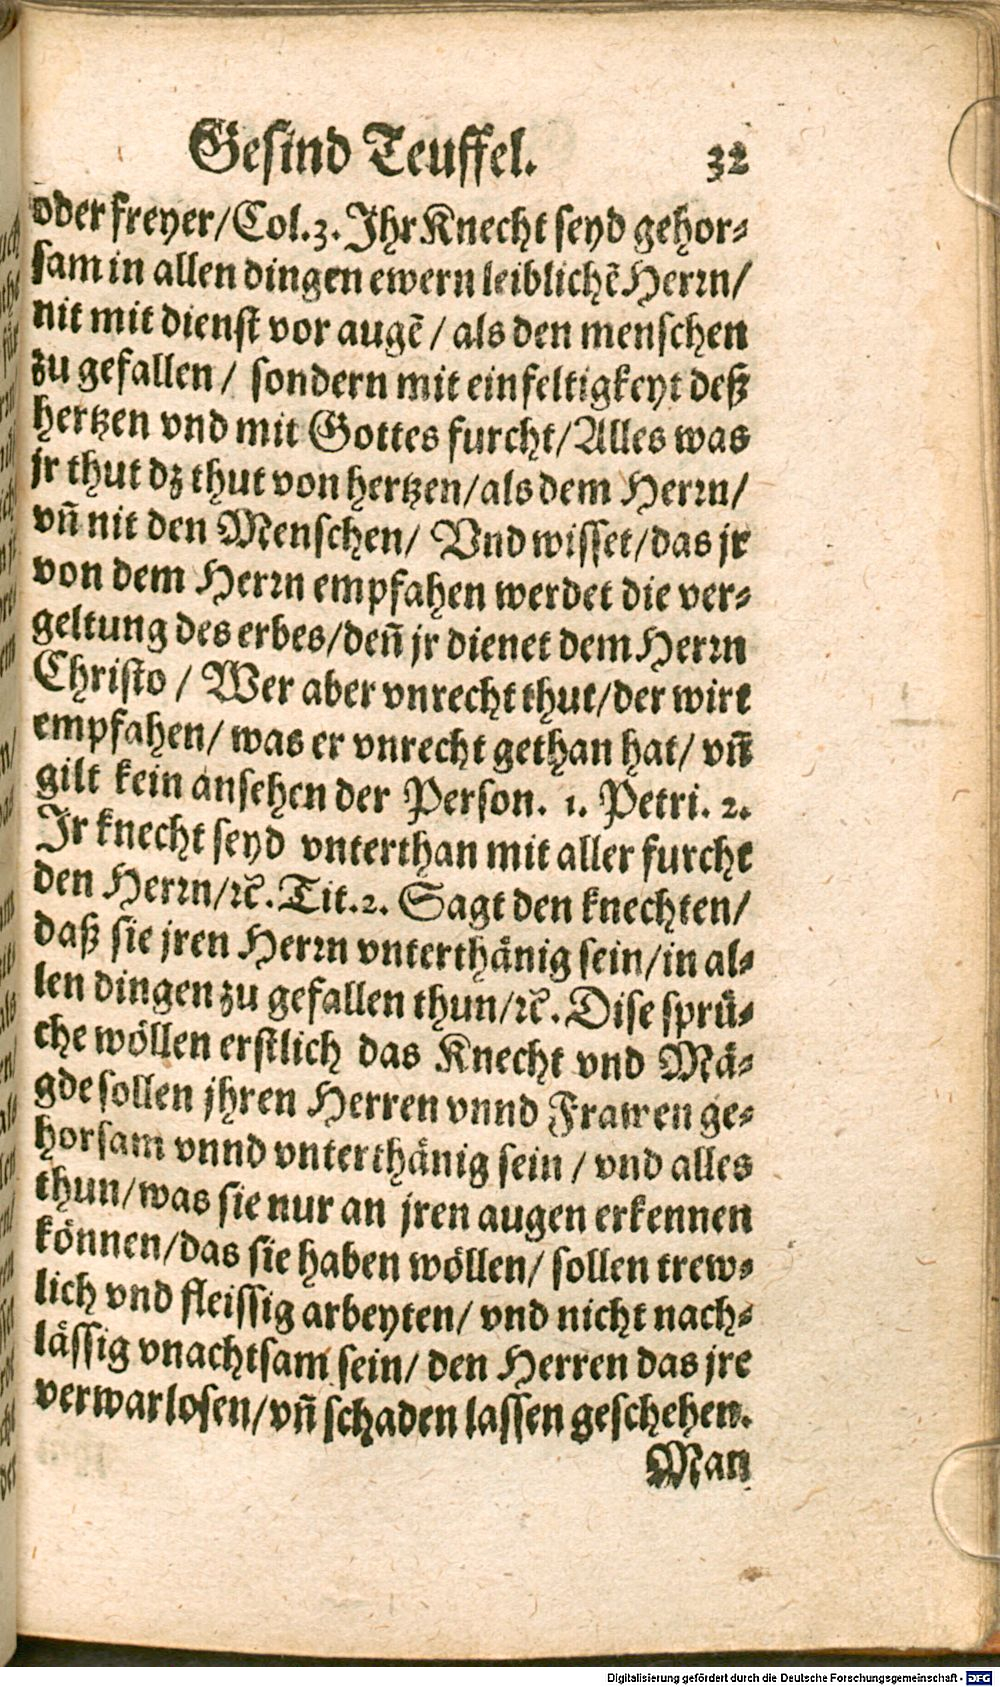 Gesind Teuffel. 32
oder freyer/Col.3. Ihr Knecht seyd gehor⸗
sam in allen dingen ewern leiblichẽ Herrn/
nit mit dienst vor augẽ / als den menschen
zu gefallen / sondern mit einfeltigkeyt deß
hertzen vnd mit Gottes furcht/Alles was
jr thut dz thut von hertzen/als dem Herrn/
vñ nit den Menschen/ Vnd wisset/das jr
von dem Herrn empfahen werdet die ver⸗
geltung des erbes/deñ jr dienet dem Herrn
Christo / Wer aber vnrecht thut/der wirt
empfahen/ was er vnrecht gethan hat/ vñ
gilt kein ansehen der Person. 1. Petri. 2.
Jr knecht seyd vnterthan mit aller furcht
den Herrn/ꝛc̃. Tit.2. Sagt den knechten/
daß sie jren Herrn vnterthänig sein/in al⸗
len dingen zu gefallen thun/ꝛc̃. Dise sprü⸗
che wöllen erstlich das Knecht vnd Mä⸗
gde sollen jhren Herren vnnd Frawen ge⸗
horsam vnnd vnterthänig sein / vnd alles
thun/was sie nur an jren augen erkennen
können/das sie haben wöllen/ sollen trew⸗
lich vnd fleissig arbeyten/ vnd nicht nach⸗
lässig vnachtsam sein/ den Herren das jre
verwarlosen/vñ schaden lassen geschehen.
Man
Digitalisierung gefördert durch die Deutsche Forschungsgemeinschaft - DFG